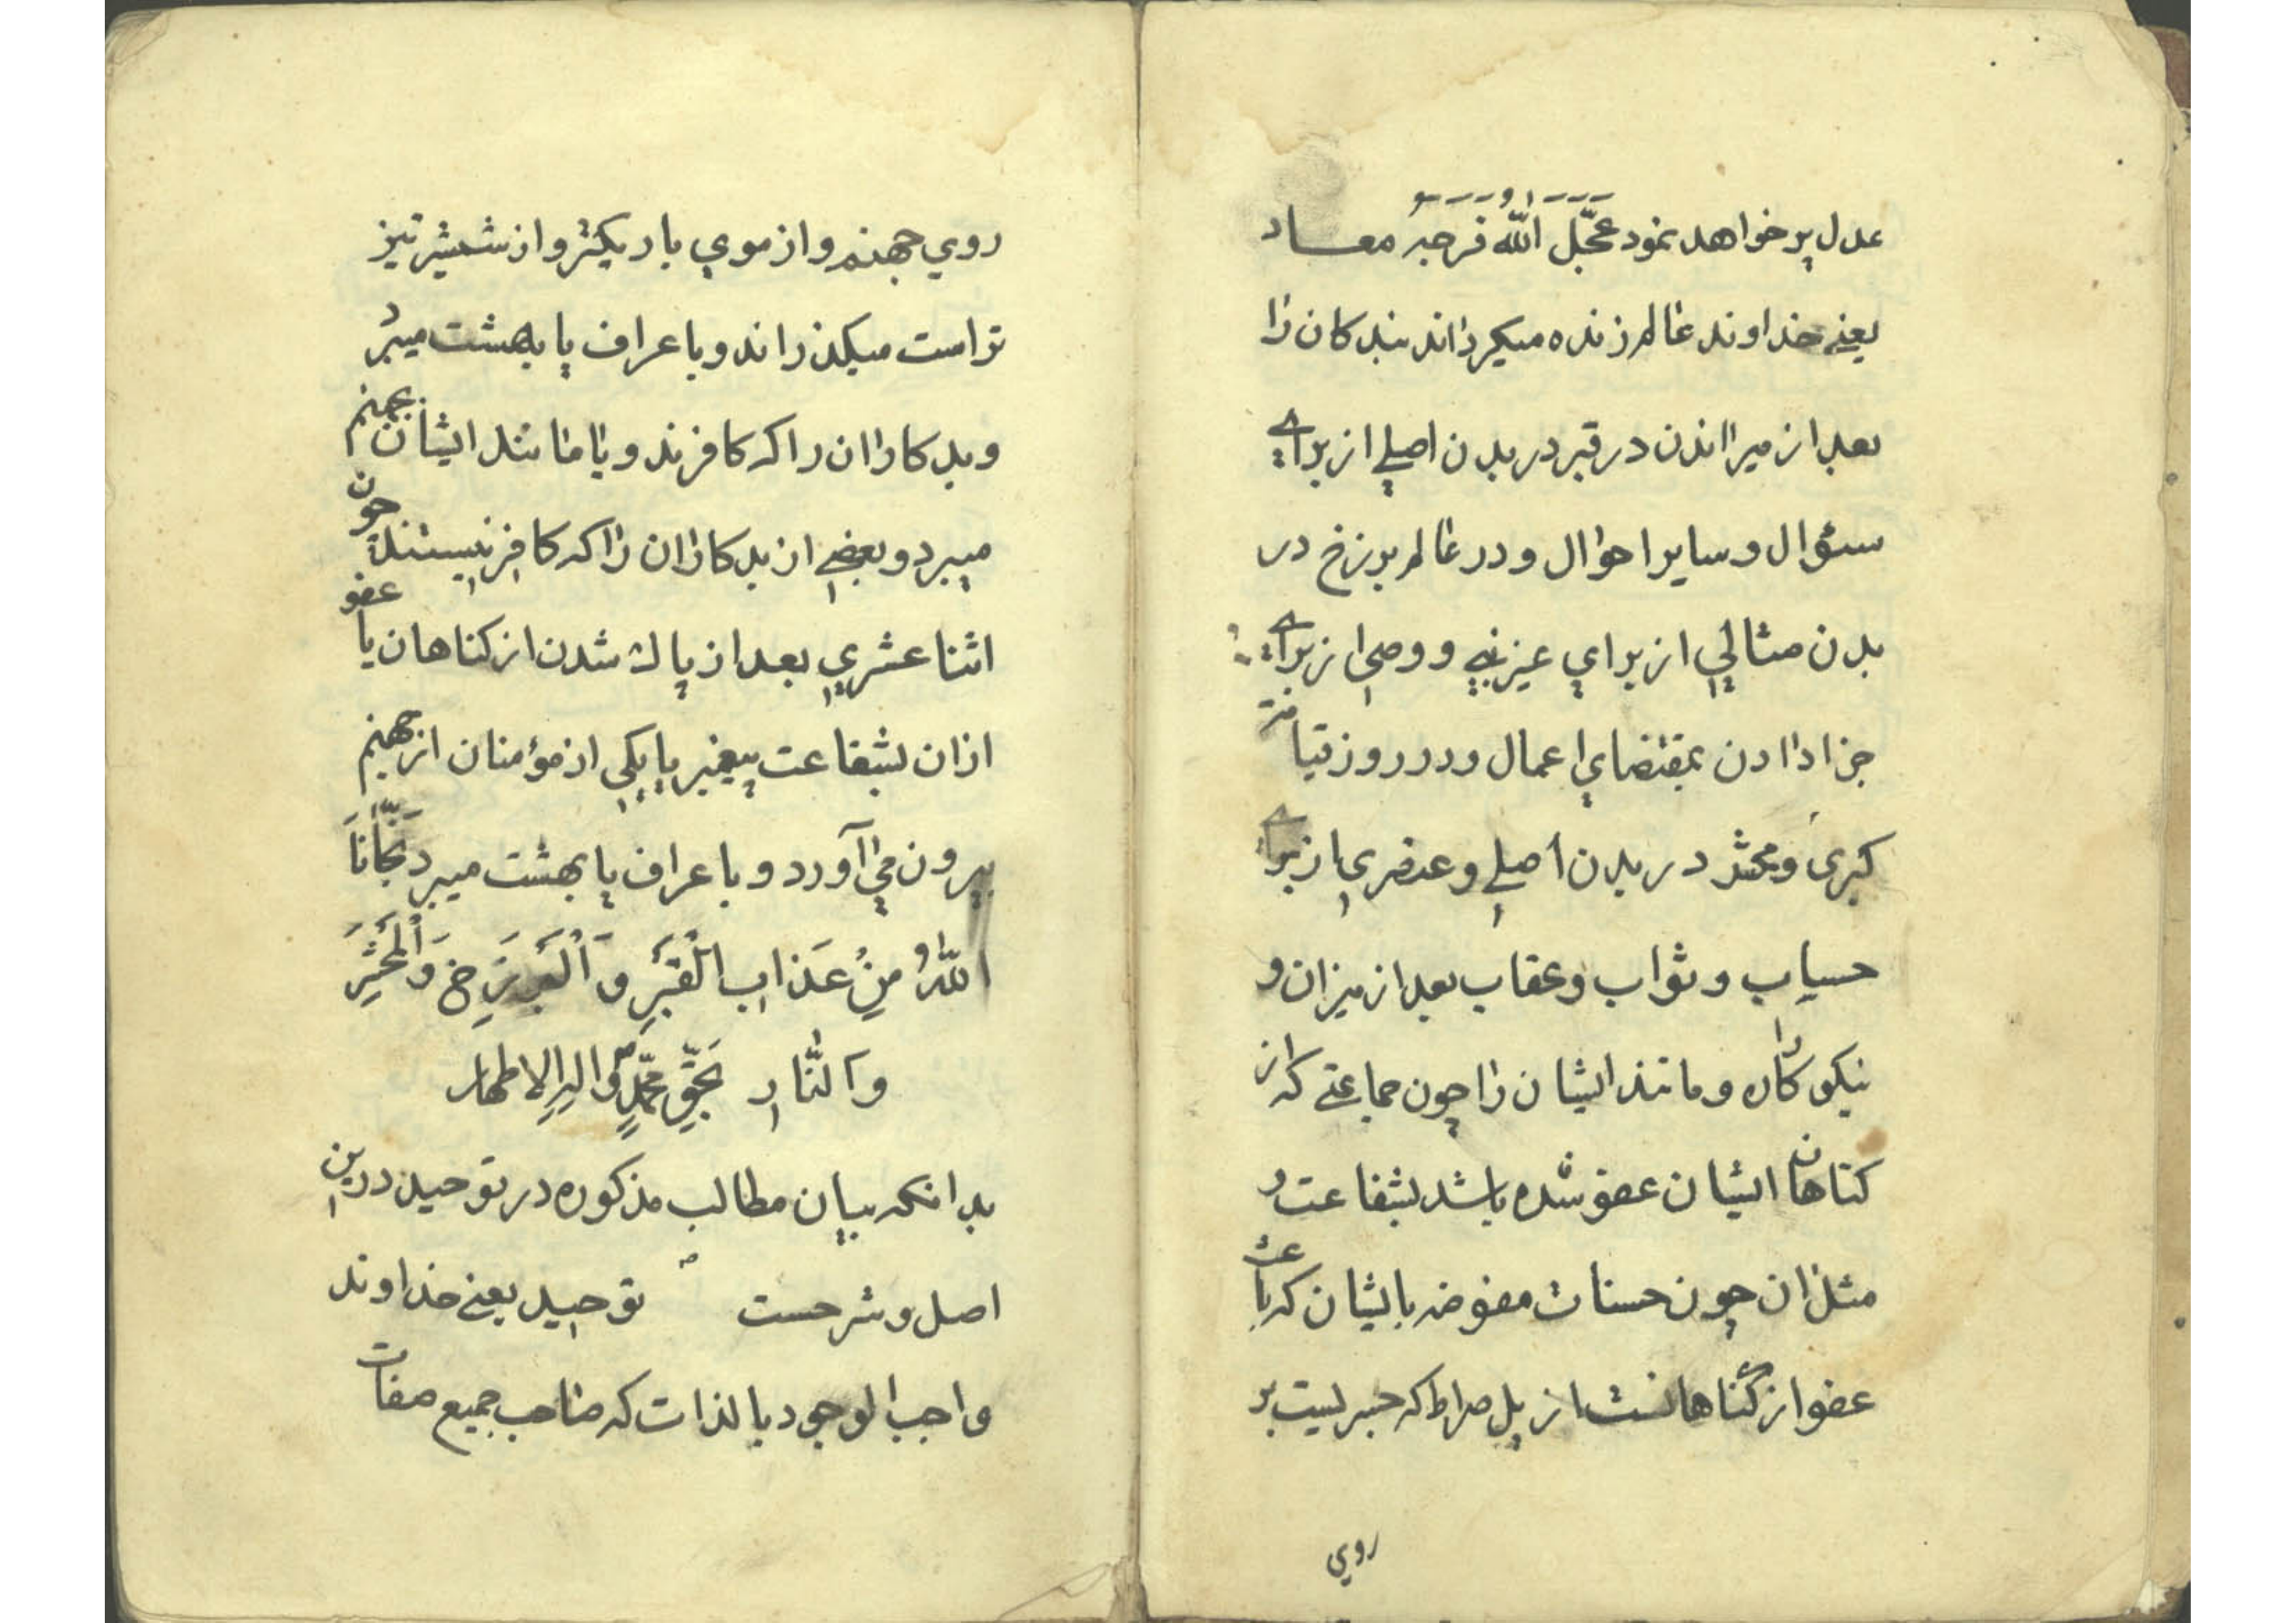 عدل پر خواهد نمود عَجَّلَ اللّهُ فَرَجَهُ معاد
یعنے خداوند عالم زنده میکرداند بندکان را
بعد از میراندن در قبر در بدن اصلے از برای
سؤال و سایر احوال و در عالم برزخ در
بدن مثالي از براي غیر نبی و وصی از برای
جزا دادن بمقتضاي اعمال و در روز قیامت
کبری و محشر در بدن اصلے و عنصری از برای
حساب و ثواب و عقاب بعد از میزان و
نیکو کاران و مانند ایشان را چون جماعتے که از
کناهان ایشان عفو شده باشد بشفاعت و
مثل ان چون حسنات مفوضه بایشان که باعث
عفو از کناهانست از پل صراط که جسریست بر
روي
روي جهنم و از موي باریکتر و از شمشیر تیز
تر است میکذراند و باعراف یا بهشت میبرد
و بدکاران را که کافرند و یا مانند ایشان بجهنم
میبرد و بعضے از بدکاران را که کافر نیستند چون
اثنا عشري بعد از پاك شدن از کناهان یا عفو
ازان بشفاعت پیغمبر یا یکي از مؤمنان از جهنم
بیرون می آورد و باعراف یا بهشت میبرد نَجَّانَا
اللّهُ مِنْ عَذَابِ الْقَبْرِ وَ الْبَرْزَخِ وَ الْمَحْشَرِ
وَ النَّارِ بِحَقِّ مُحَمَّدٍ وَ الِهِ الاطهار
بدانکه بیان مطالب مذکوره در توحید درین
اصل و شرحست توحید یعنے خداوند
واجب الوجود بالذات که صاحب جمیع صفات